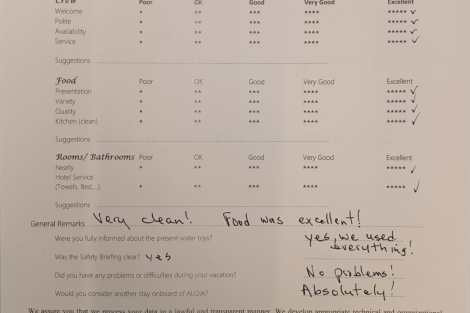 Crew Poor OK Good Very Good Excellent
Welcome * ** *** **** ***** ✓
Polite * ** *** **** ***** ✓
Availability * ** *** **** ***** ✓
Service * ** *** **** ***** ✓
Suggestions
Food Poor OK Good Very Good Excellent
Presentation * ** *** **** ***** ✓
Variety * ** *** **** ***** ✓
Quality * ** *** **** ***** ✓
Kitchen (clean) * ** *** **** ***** ✓
Suggestions
Rooms/ Bathrooms Poor OK Good Very Good Excellent
Neatly * ** *** **** ***** ✓
Hotel Service
(Towels, Bed,...) * ** *** **** ***** ✓
Suggestions
General Remarks Very clean! Food was excellent!
Were you fully informed about the present water toys? yes, we used
everything!
Was the Safety Briefing clear? yes
Did you have any problems or difficulties during your vacation? No problems!
Would you consider another stay onboard of ALISIA? Absolutely!
We assure you that we process your data in a lawful and transparent manner. We develop appropriate technical and organizational